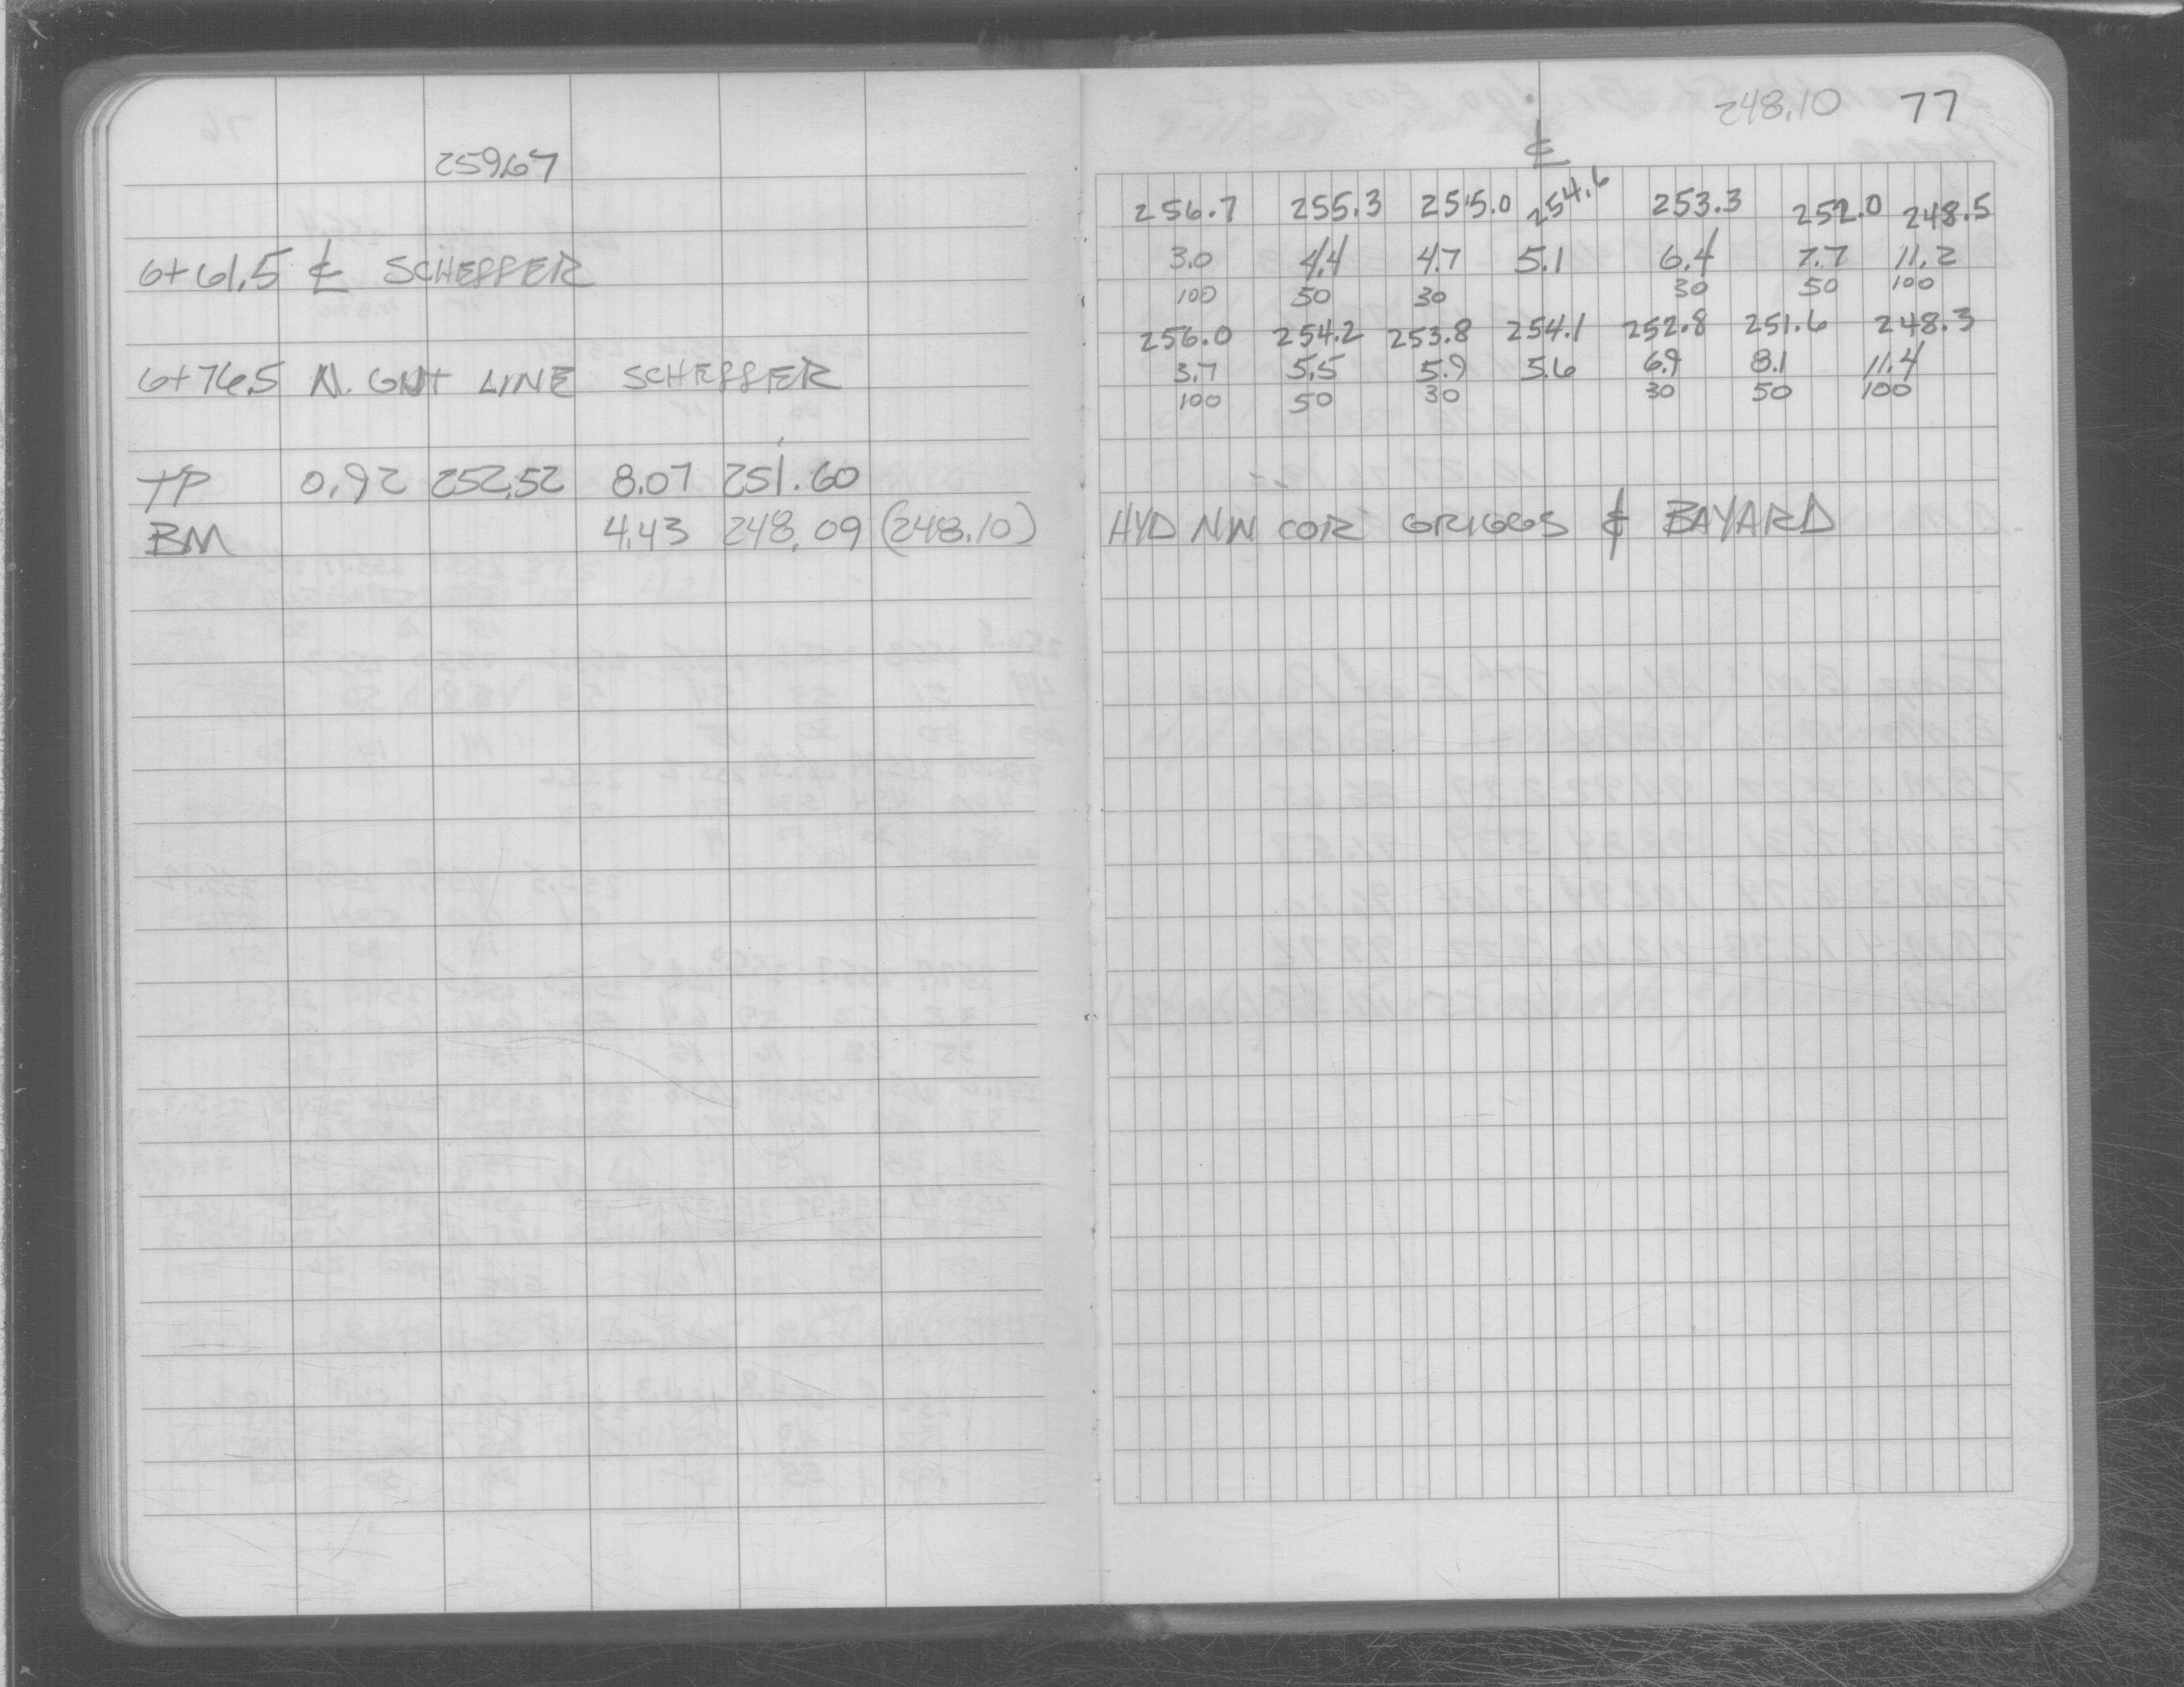 259.67
6+61.5 ℄ SCHEFFER
6+76.5 N. GUT LINE SCHEFFER
TP 0.92 252.52 8.07 251.60
BM 4.43 248.09 (248.10)
248.10 77
℄
256.7 255.3 255.0 254.6 253.3 252.0 248.5
3.0 4.4 4.7 5.1 6.4 7.7 11.2
100 50 30 30 50 100
256.0 254.2 253.8 254.1 252.8 251.6 248.3
3.7 5.5 5.9 5.6 6.9 8.1 11.4
100 50 30 30 50 100
HYD NW COR GRIGGS & BAYARD